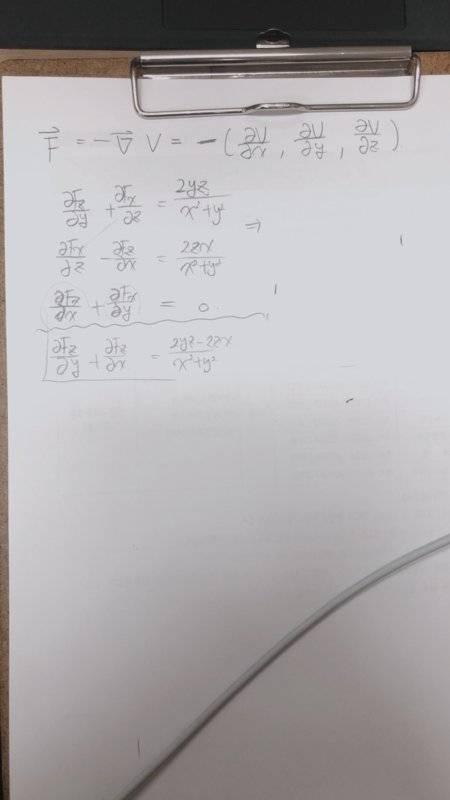 $\vec{F} = -\vec{\nabla} V = -\left(\frac{\partial V}{\partial x}, \frac{\partial V}{\partial y}, \frac{\partial V}{\partial z}\right)$
$\frac{\partial F_z}{\partial y} + \frac{\partial F_x}{\partial z} = \frac{2yz}{x^2+y^2} \Rightarrow$
$\frac{\partial F_x}{\partial z} - \frac{\partial F_z}{\partial x} = \frac{2zx}{x^2+y^2}$
$\frac{\partial F_z}{\partial x} + \frac{\partial F_x}{\partial y} = 0.$
$\frac{\partial F_z}{\partial y} + \frac{\partial F_z}{\partial x} = \frac{2yz-2zx}{x^2+y^2}$